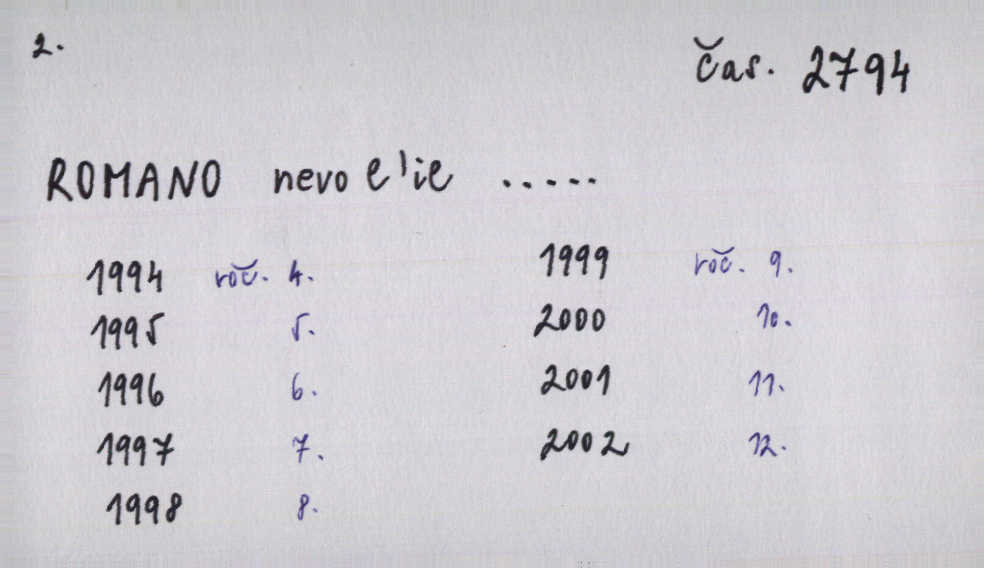 2.
čas. 2794
ROMANO nevo l'il .....
1994 roč. 4. 1999 roč. 9.
1995 5. 2000 10.
1996 6. 2001 11.
1997 7. 2002 12.
1998 8.